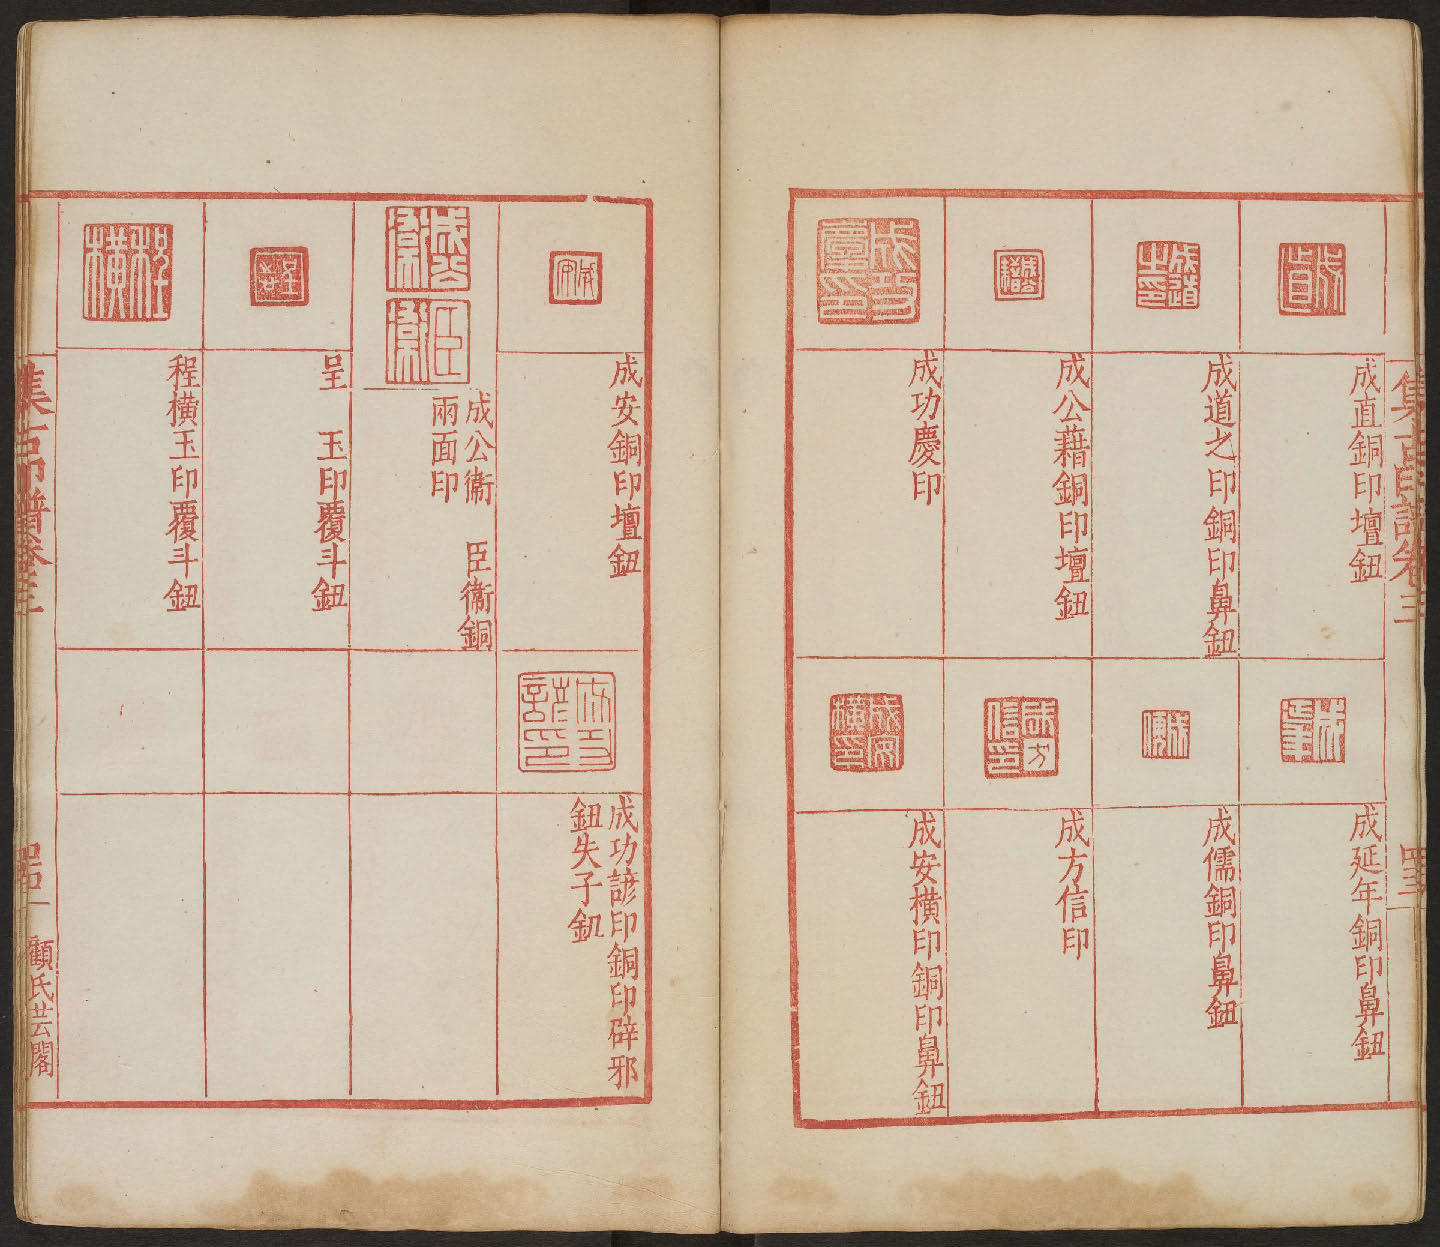 集古印譜卷三
四三
成直銅印壇鈕
成道之印銅印鼻鈕
成公藉銅印壇鈕
成功慶印
成延年銅印鼻鈕
成儒銅印鼻鈕
成方信印
成安橫印銅印鼻鈕
成安銅印壇鈕
成公衞　臣衞銅
兩面印
呈　玉印覆斗鈕
程橫玉印覆斗鈕
成功諺印銅印辟邪
鈕失子釠
集古印譜卷三
顧氏芸閣